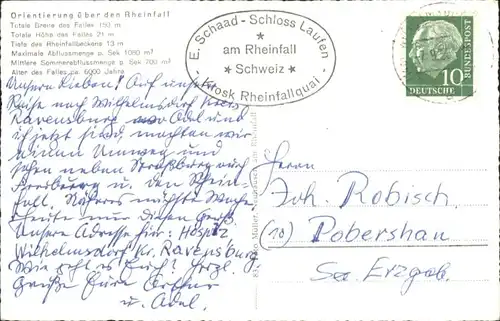 Orientierung über den Rheinfall
Totale Breite des Falles 150 m
Totale Höhe des Falles 21 m
Tiefe des Rheinfallbeckens 13 m
Maximale Abflussmenge p. Sek 1080 m³
Mittlere Sommerabflussmenge p. Sek 700 m³
Alter des Falles ca. 6000 Jahre
E. Schaad - Schloss Laufen
am Rheinfall
Schweiz
Kiosk Rheinfallquai
10
DEUTSCHE
BUNDESPOST
Unsere Lieben! Auf unsrer
Reise nach Wilhelmsdorf Kreis
Ravensburg wo Adel und
ich jetzt sind, machten wir
einen Umweg und
sahen neben Straßburg auch
Freiburg u. den Rhein-
fall. Näheres nächste Woche
Heute nur diesen Gruß.
Unsere Adresse hier: Hospiz
Wilhelmsdorf Kr. Ravensburg
Wie geht es Euch? Herzl.
Grüße Eure Arthur
u. Adel.
Herrn
Joh. Robisch
(10) Pobershau
Erzgeb.